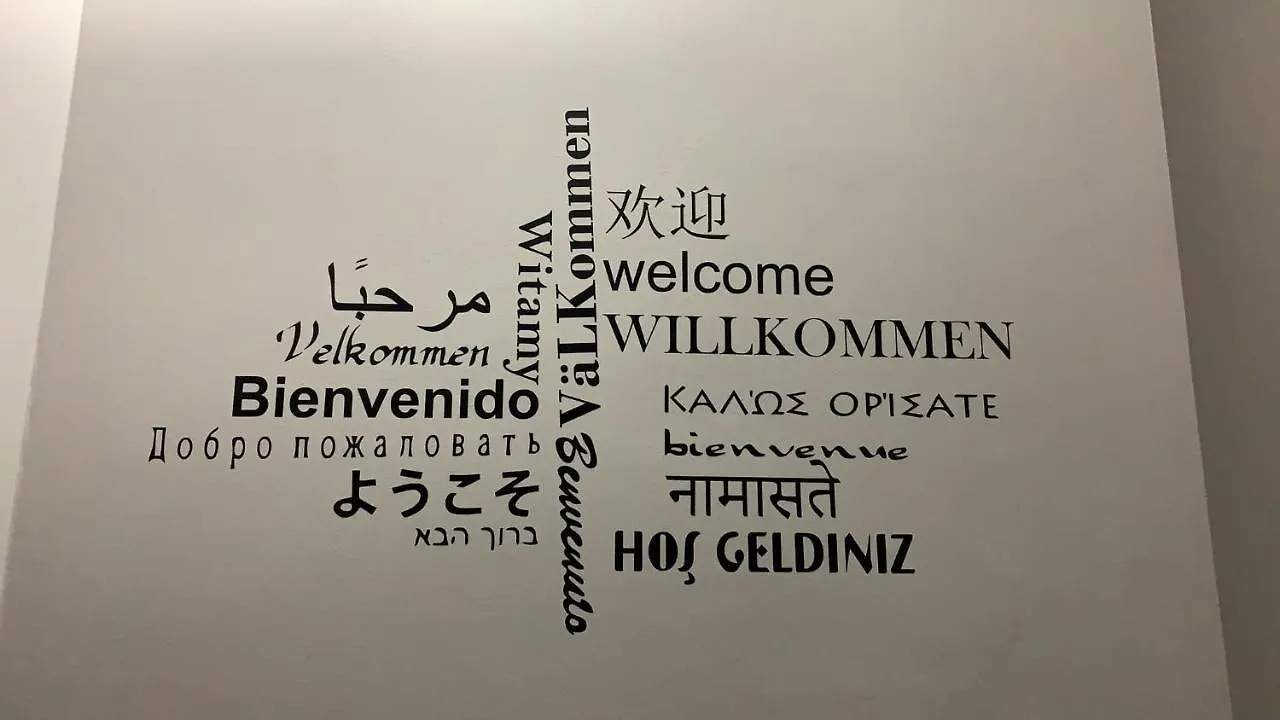 مرحبًا
Velkommen
Bienvenido
Добро пожаловать
ようこそ
ברוך הבא
Witamy
VäLKommen
Benvenuto
欢迎
welcome
WILLKOMMEN
ΚΑΛΏΣ ΟΡΊΣΑΤΕ
bienvenue
नामासते
HOŞ GELDINIZ